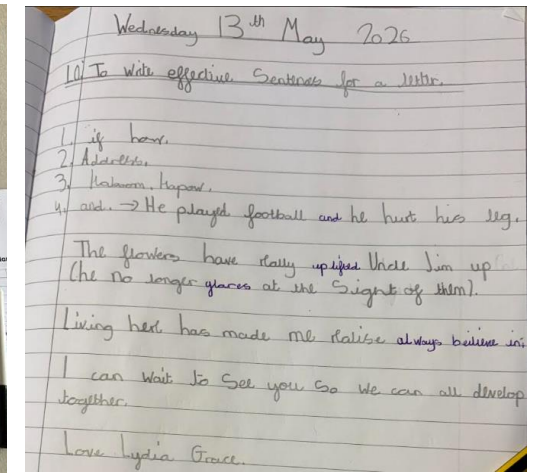 Wednesday 13th May 2026
LO To write effective Sentences for a letter.
1. if how.
2. Address.
3. Kaboom. Kapow.
4. and. → He played football and he hurt his leg.
The flowers have really uplifted Uncle Jim up
(he no longer glares at the Sight of them).
Living here has made me realise always believe in
I can wait to See you So we can all develop
together.
Love Lydia Grace.